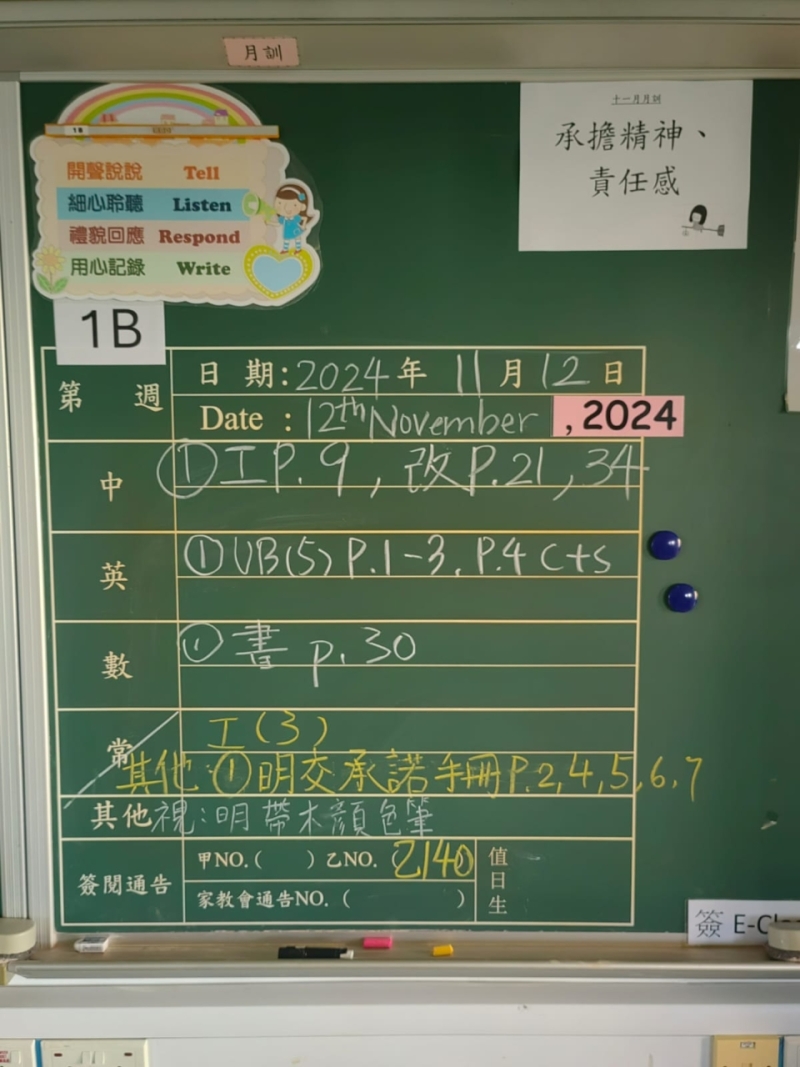 月訓
1B
開聲說說 Tell
細心聆聽 Listen
禮貌回應 Respond
用心記錄 Write
十一月月訓
承擔精神、
責任感
1B
第 週
日 期:2024年 11月12日
Date : 12th November , 2024
中 ①工P.9, 改P.21, 34
英 ①UB(5) P.1-3, P.4 C+S
數 ①書 p.30
常 工(3)
其他:①明交承諾手冊P.2,4,5,6,7
其他 視:明帶木顏色筆
簽閱通告 甲NO.( ) 乙NO.(乙140) 值日生
家教會通告NO.( )
簽 E-Cl